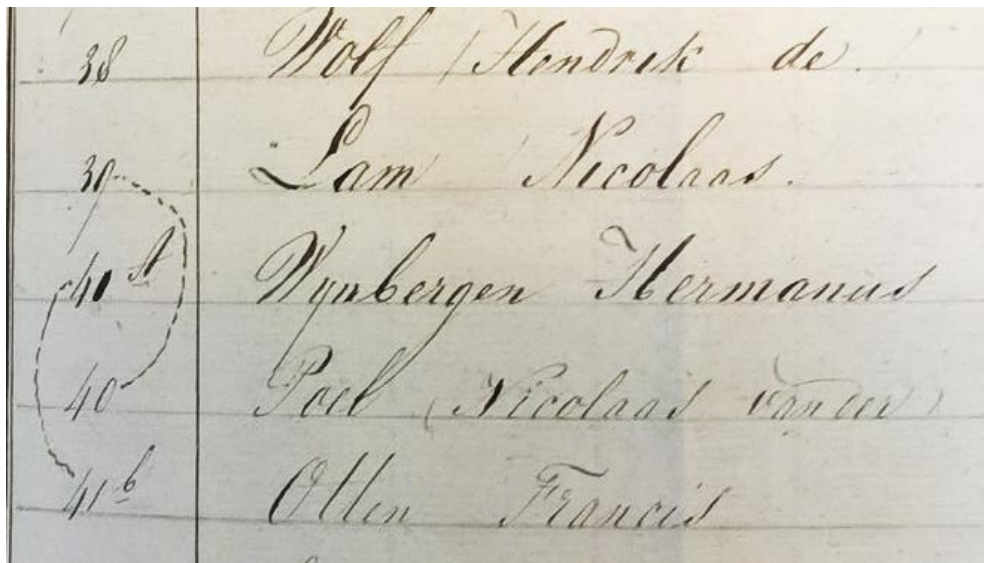 38 Wolf (Hendrik de)
39 Lam Nicolaas.
41 a Wynbergen Hermanus
40 Poel (Nicolaas van der)
41 b Otten Francis